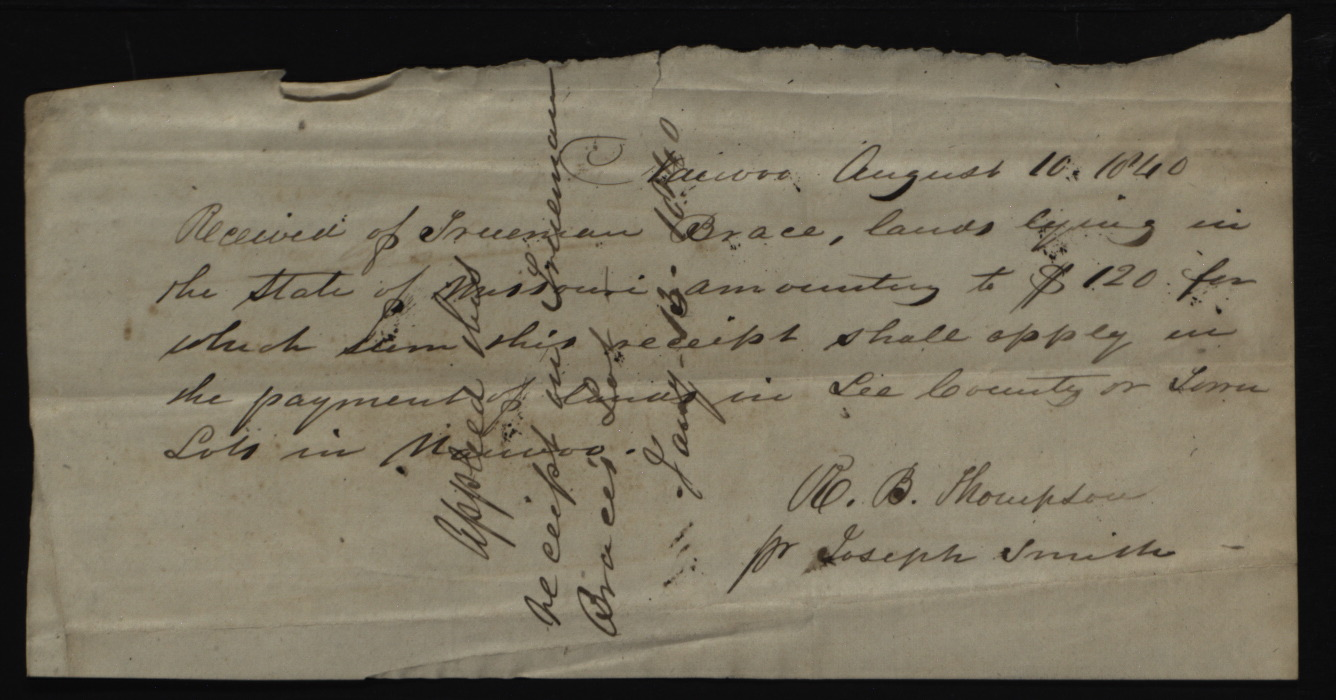 Nauvoo August 10. 1840
Received of Trueman Brace, lands lying in
the State of Missouri amounting to $ 120 for
which Sum this receipt shall apply in
the payment of Lands in Lee County or Town
Lots in Nauvoo.
R. B. Thompson
pr Joseph Smith
Applied this
receipt on Trueman
Brace's Lot
Jany 13. 1840